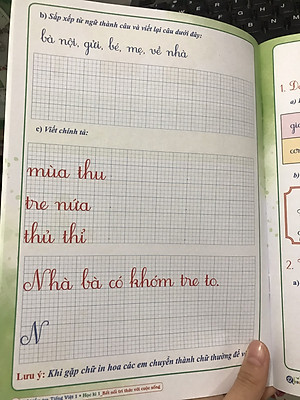 b) Sắp xếp từ ngữ thành câu và viết lại câu dưới đây:
bà nội, gửi, bé, mẹ, về nhà
c) Viết chính tả:
mùa thu
tre nứa
thủ thỉ
Nhà bà có khóm tre to.
N
Lưu ý: Khi gặp chữ in hoa các em chuyển thành chữ thường để v
Tiếng Việt 1 • Học kì 1_Kết nối tri thức với cuộc sống
1.
a)
b)
2.
a)